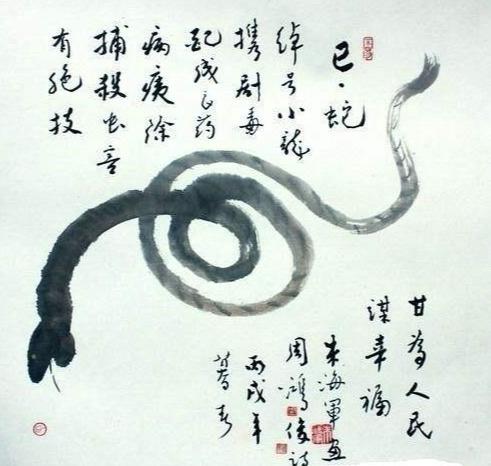 巳·蛇
绰号小龍
携剧毒
配成良药
病痍除
捕殺虫害
有绝技
甘為人民
謀幸福
朱海軍画
周鴻俊詩
丙戌年
暮春